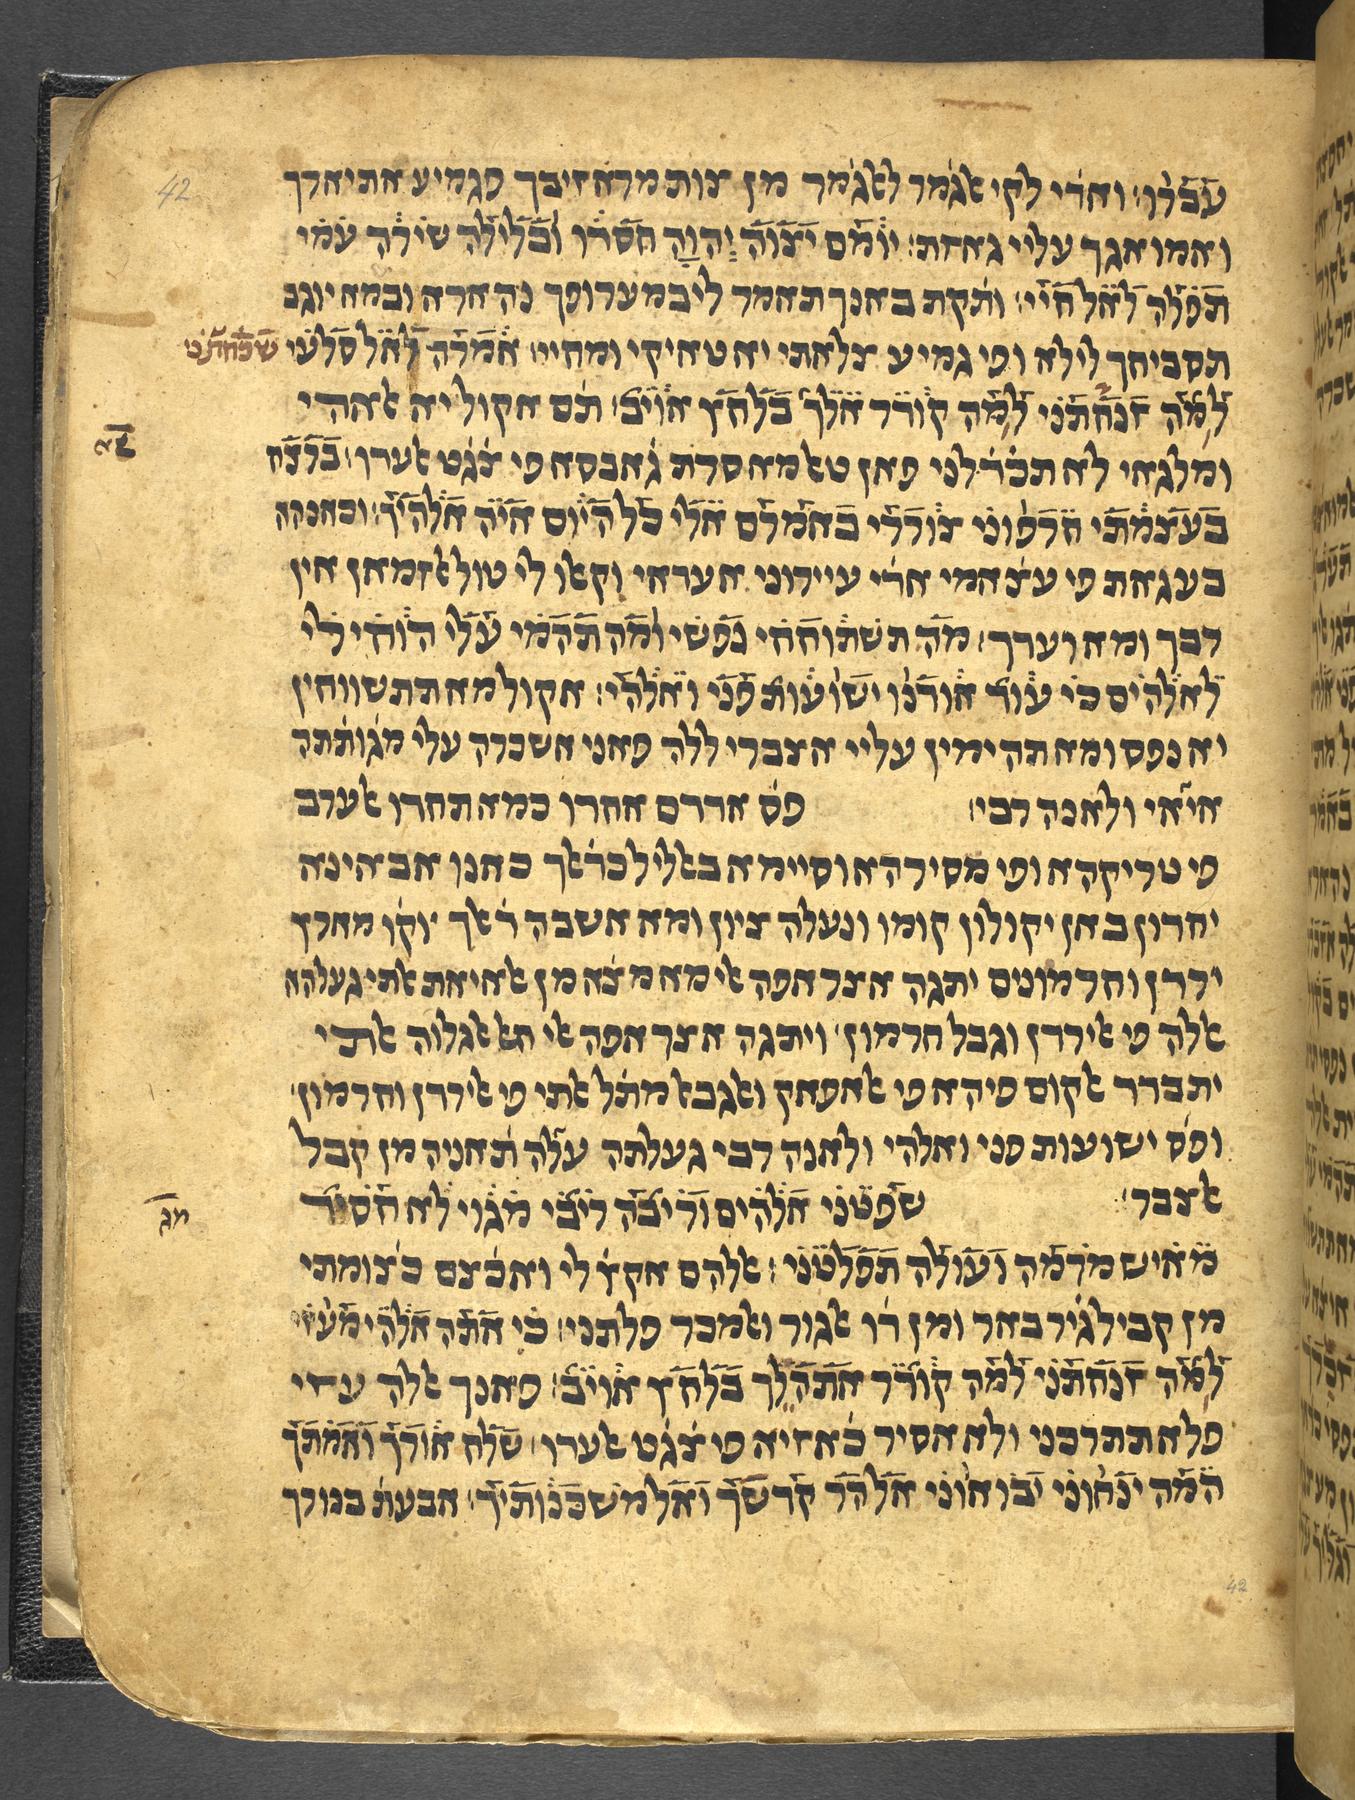 42
עברו: ואדי לקי אלגמר לאלגמר מן צות מראזיבך פגמיע אתיארך
ואמואגך עליי גאזת: יומם יצוה יהוה חסדו ובלילה שירה עמי
תפלה לאל חיי: ותקת באנך תאמר לי במערופך נהארא ובמא יוגב
תסביחך לילא ופי גמיע צלאתי יא טאיקי ומחיי: אמרה לאל סלעי
שכחתני
למה זנחתני למה קודר אלך בלחץ אויב: תם אקול יא אלאהי
ומלגאי לא תכדלני פאן טאל מא סרת גאבסא פי צגט אלעדו: ברצח
בעצמתי חרפוני צוררי באמרם אלי כל היום איה אלהיך: וכאנהא
בעגאת פי עצאמי אדי עיירוני אעדאי וקאלו לי טול אלזמאן אין
רבך ומא ועדך: מה תשתוחחי נפשי ומה תהמי עלי הוחילי
לאלהים כי עוד אודנו ישועות פני ואלהי: אקול מא תתשווחין
יא נפס ומא תהימין עליי אצברי ללה פאני אשכרה עלי מגותתה
איאי ולאנה רבי: פס אדדם אחדו כמא תחדו אלערב
פי טריקהא ופי מסירהא וסיימא באלליל כדאלך כאנו אבאהינא
יחדון באן יקולון קומו ונעלה ציון ומא אשבה דאלך וקו מארץ
ירדן וחרמונים יתגה אנצראפה אלי מא מצא מן אלאיאת אלתי געלהא
אללה פי אלירדן וגבל חרמון ויתגה אנצראפה אלי תאלאגלוה אלדי
יתבדד אלקום פיהא פי אלאפאק ואלגבאל מתל אלתי פי אלירדן וחרמון
ופס ישועות פני ואלהי ולאנה רבי געלתה עלה תאניה מן קבל
אלצבר: שפטני אלהים וריבה ריבי מגוי לא חסיד
מג
מאיש מרמה ועולה תפלטני: אללהם אקץ לי ואכצם כצומתי
מן קביל גיר באר ומן דו אלגור ואלמכר פלתני: כי אתה אלהי מעזי
למה זנחתני למה קודר אתהלך בלחץ אויב: פאנך אללה עזי
פלא תתרכני ולא אסיר כאזיא פי צגט אלעדו: שלח אורך ואמתך
המה ינחוני יבואוני אל הר קדשך ואל משכנותיך: אבעת בנורך
42